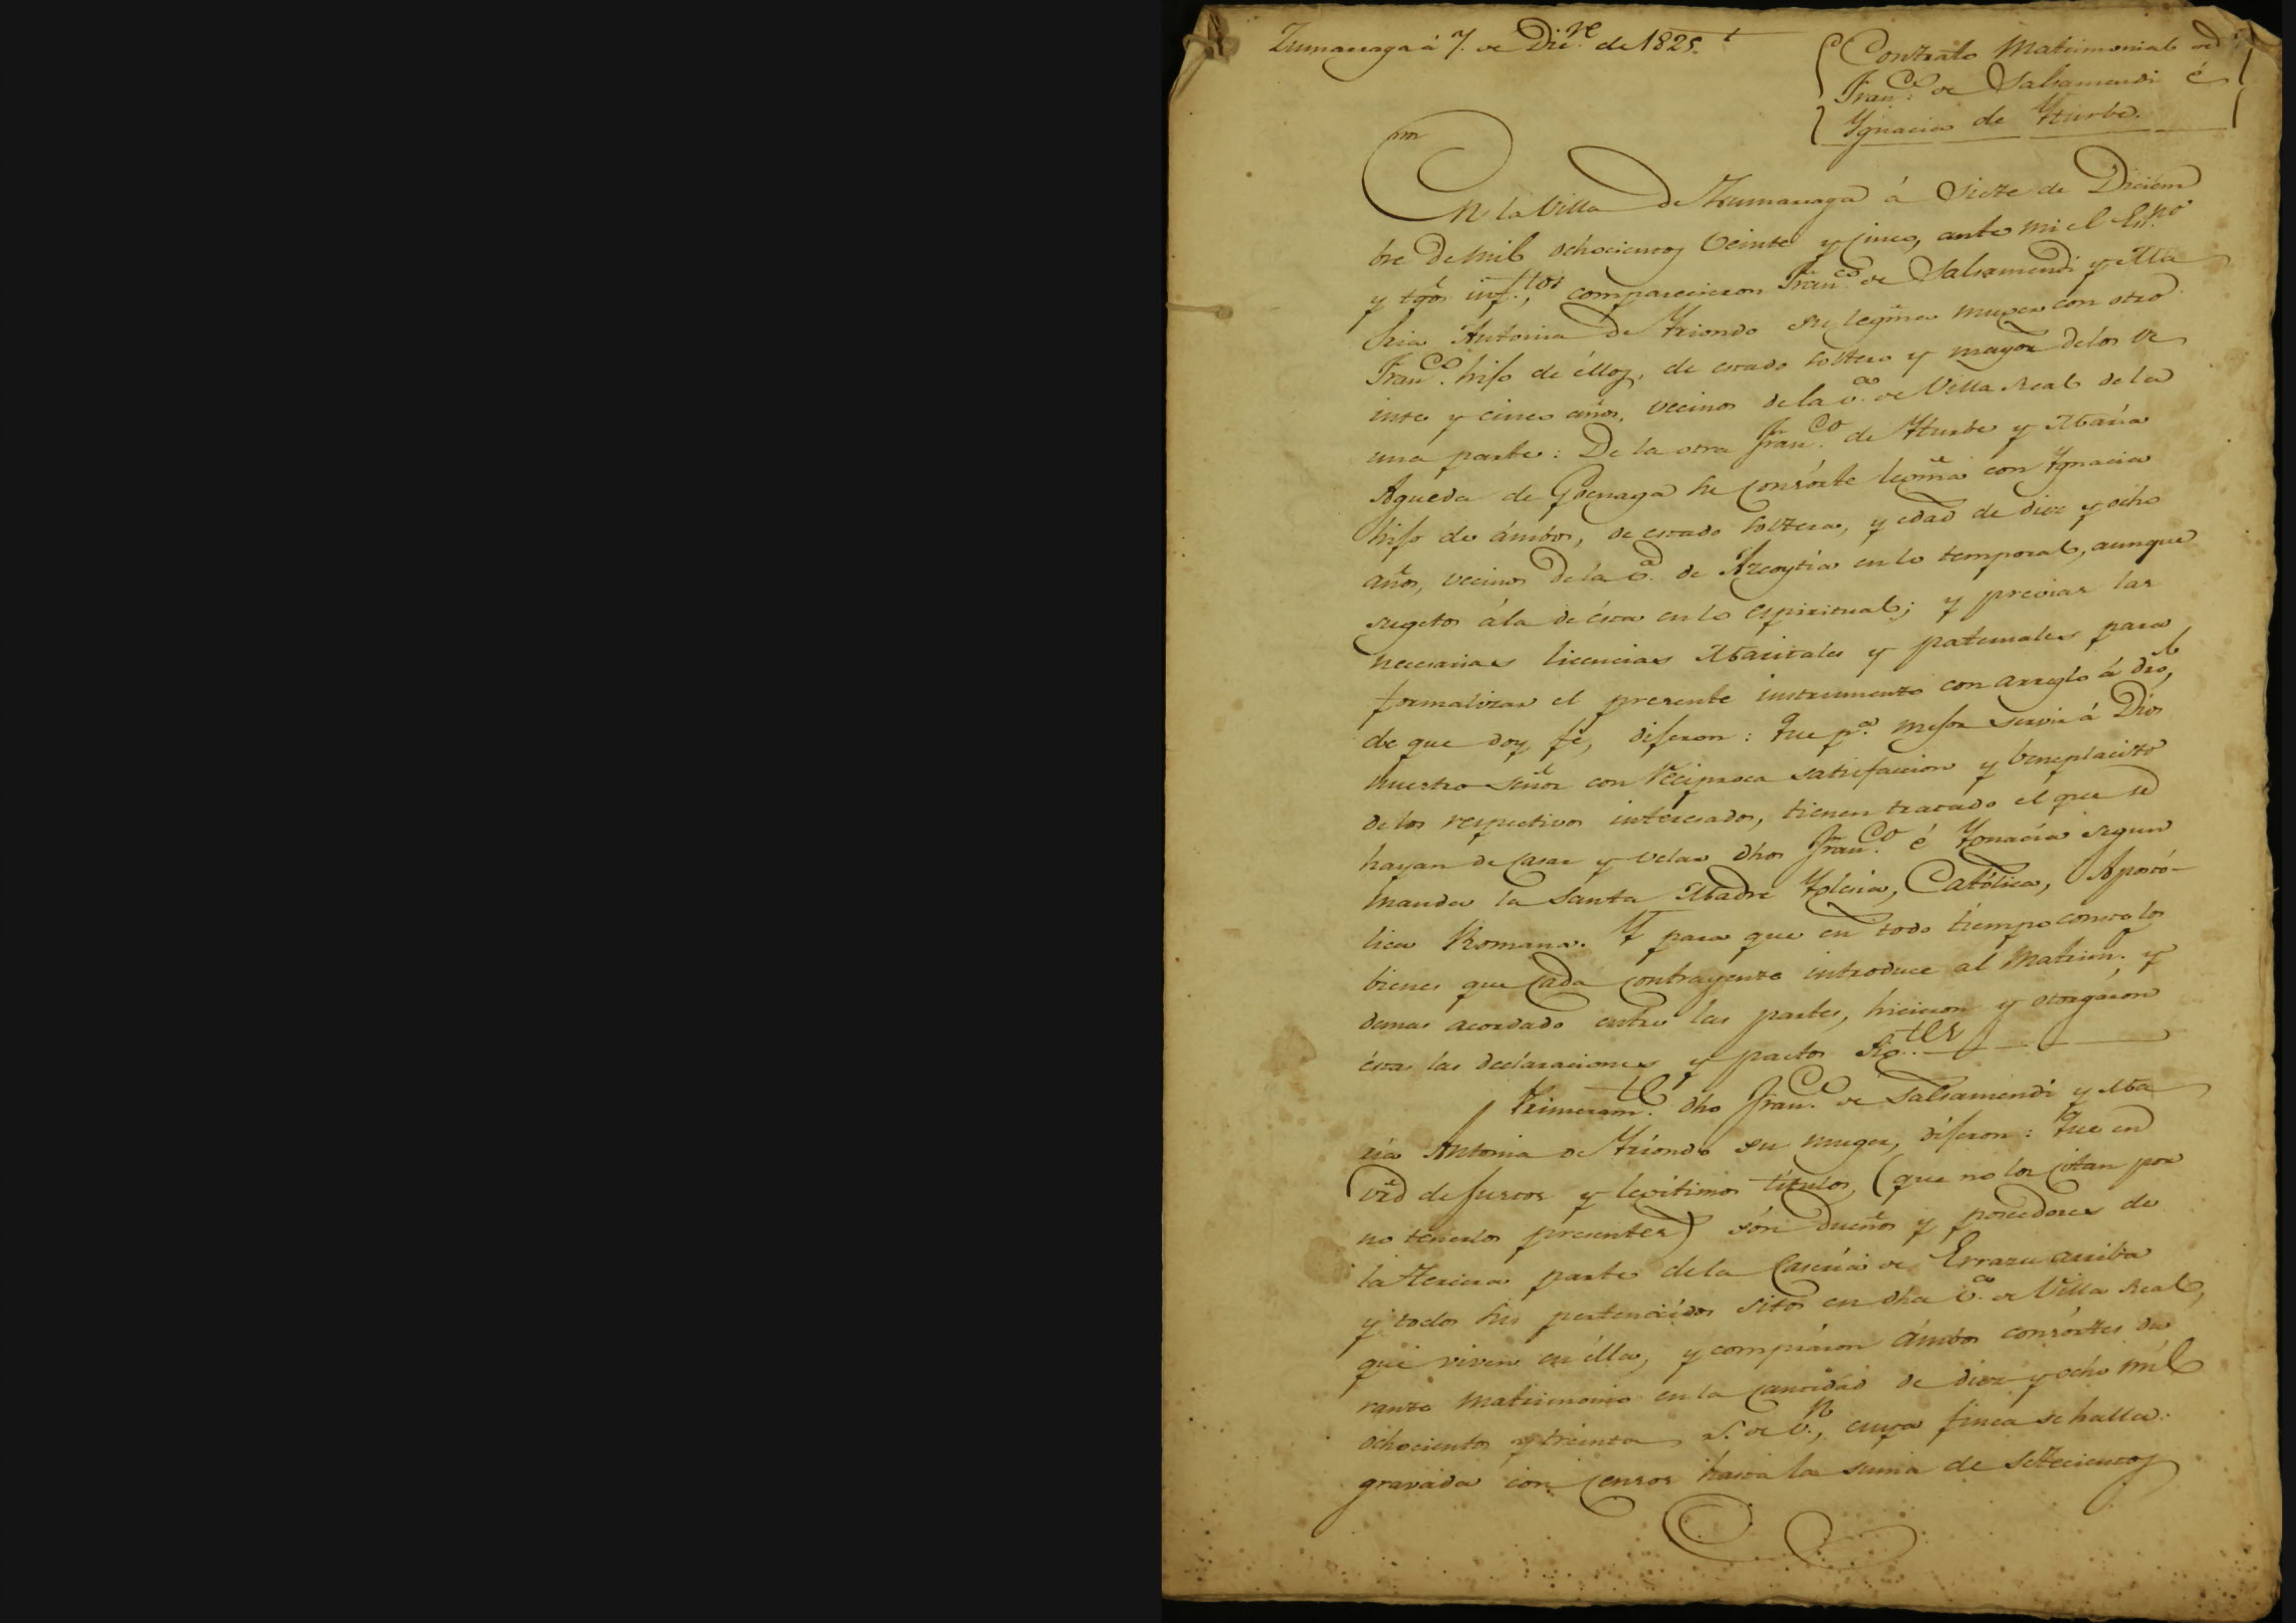 Zumarraga á 7. de Dic.re de 1825.
Contrato Matrimonial de
Fran.co de Salsamendi é
Ygnacia de Yturbe.
En la Villa de Zumarraga á Siete de Diciem
bre de mil ochocientos Veinte y cinco, ante mi el Es.no
y tgos inf.tos comparecieron Fran.co de Salsamendi y Ma
ria Antonia de Yriondo su legma muger con otro
Fran.co hijo de éllos, de estado soltero y mayor de los ve
inte y cinco años, vecinos de la v.a de Villa Real de la
una parte: De la otra Fran.co de Yturbe y María
Agueda de Goenaga su consórte legma con Ygnacia
hija de ámbos, de estado soltera, y edad de diez y ocho
años, vecinos de la v.a de Azcoytia en lo temporal, aunque
sugetos á la de ésta en lo espiritual; y previas las
necesarias licencias Maritales y paternales para
formalizar el presente instrumento con arreglo á dro,
de que doy fé, dijeron: Que p.a mejor servir á Dios
nuestro Señor con reciproca satisfaccion y beneplacito
de los respectivos interesados, tienen tratado el que se
hayan de casar y velar dhos Fran.co é Ygnacia segun
manda la Santa Madre Yglesia, Católica, Apostó-
lica Romana. Y para que en todo tiempo conste los
bienes que cada contrayente introduce al Matrim., y
demas acordado entre las partes, hicieron y otorgaron
ésta las declaraciones y pactos sig.tes
Primeram.te dho Fran.co de Salsamendi y Ma
ría Antonia de Yriondo su muger, dijeron: Que en
vrd de justos y legitimos titulos, (que no los citan por
no tenerlos presentes) són dueños y poseedores de
la tercera parte de la Casería de Errazu arriba
y todos sus pertenecidos sitos en dha v.a de Villa Real,
que viven en élla, y compráron ámbos consórtes du
rante Matrimonio en la cantidad de diez y ocho mil
ochocientos y treinta r.s de v.n, cuya finca se halla
gravada con censos hasta la suma de Setecientos